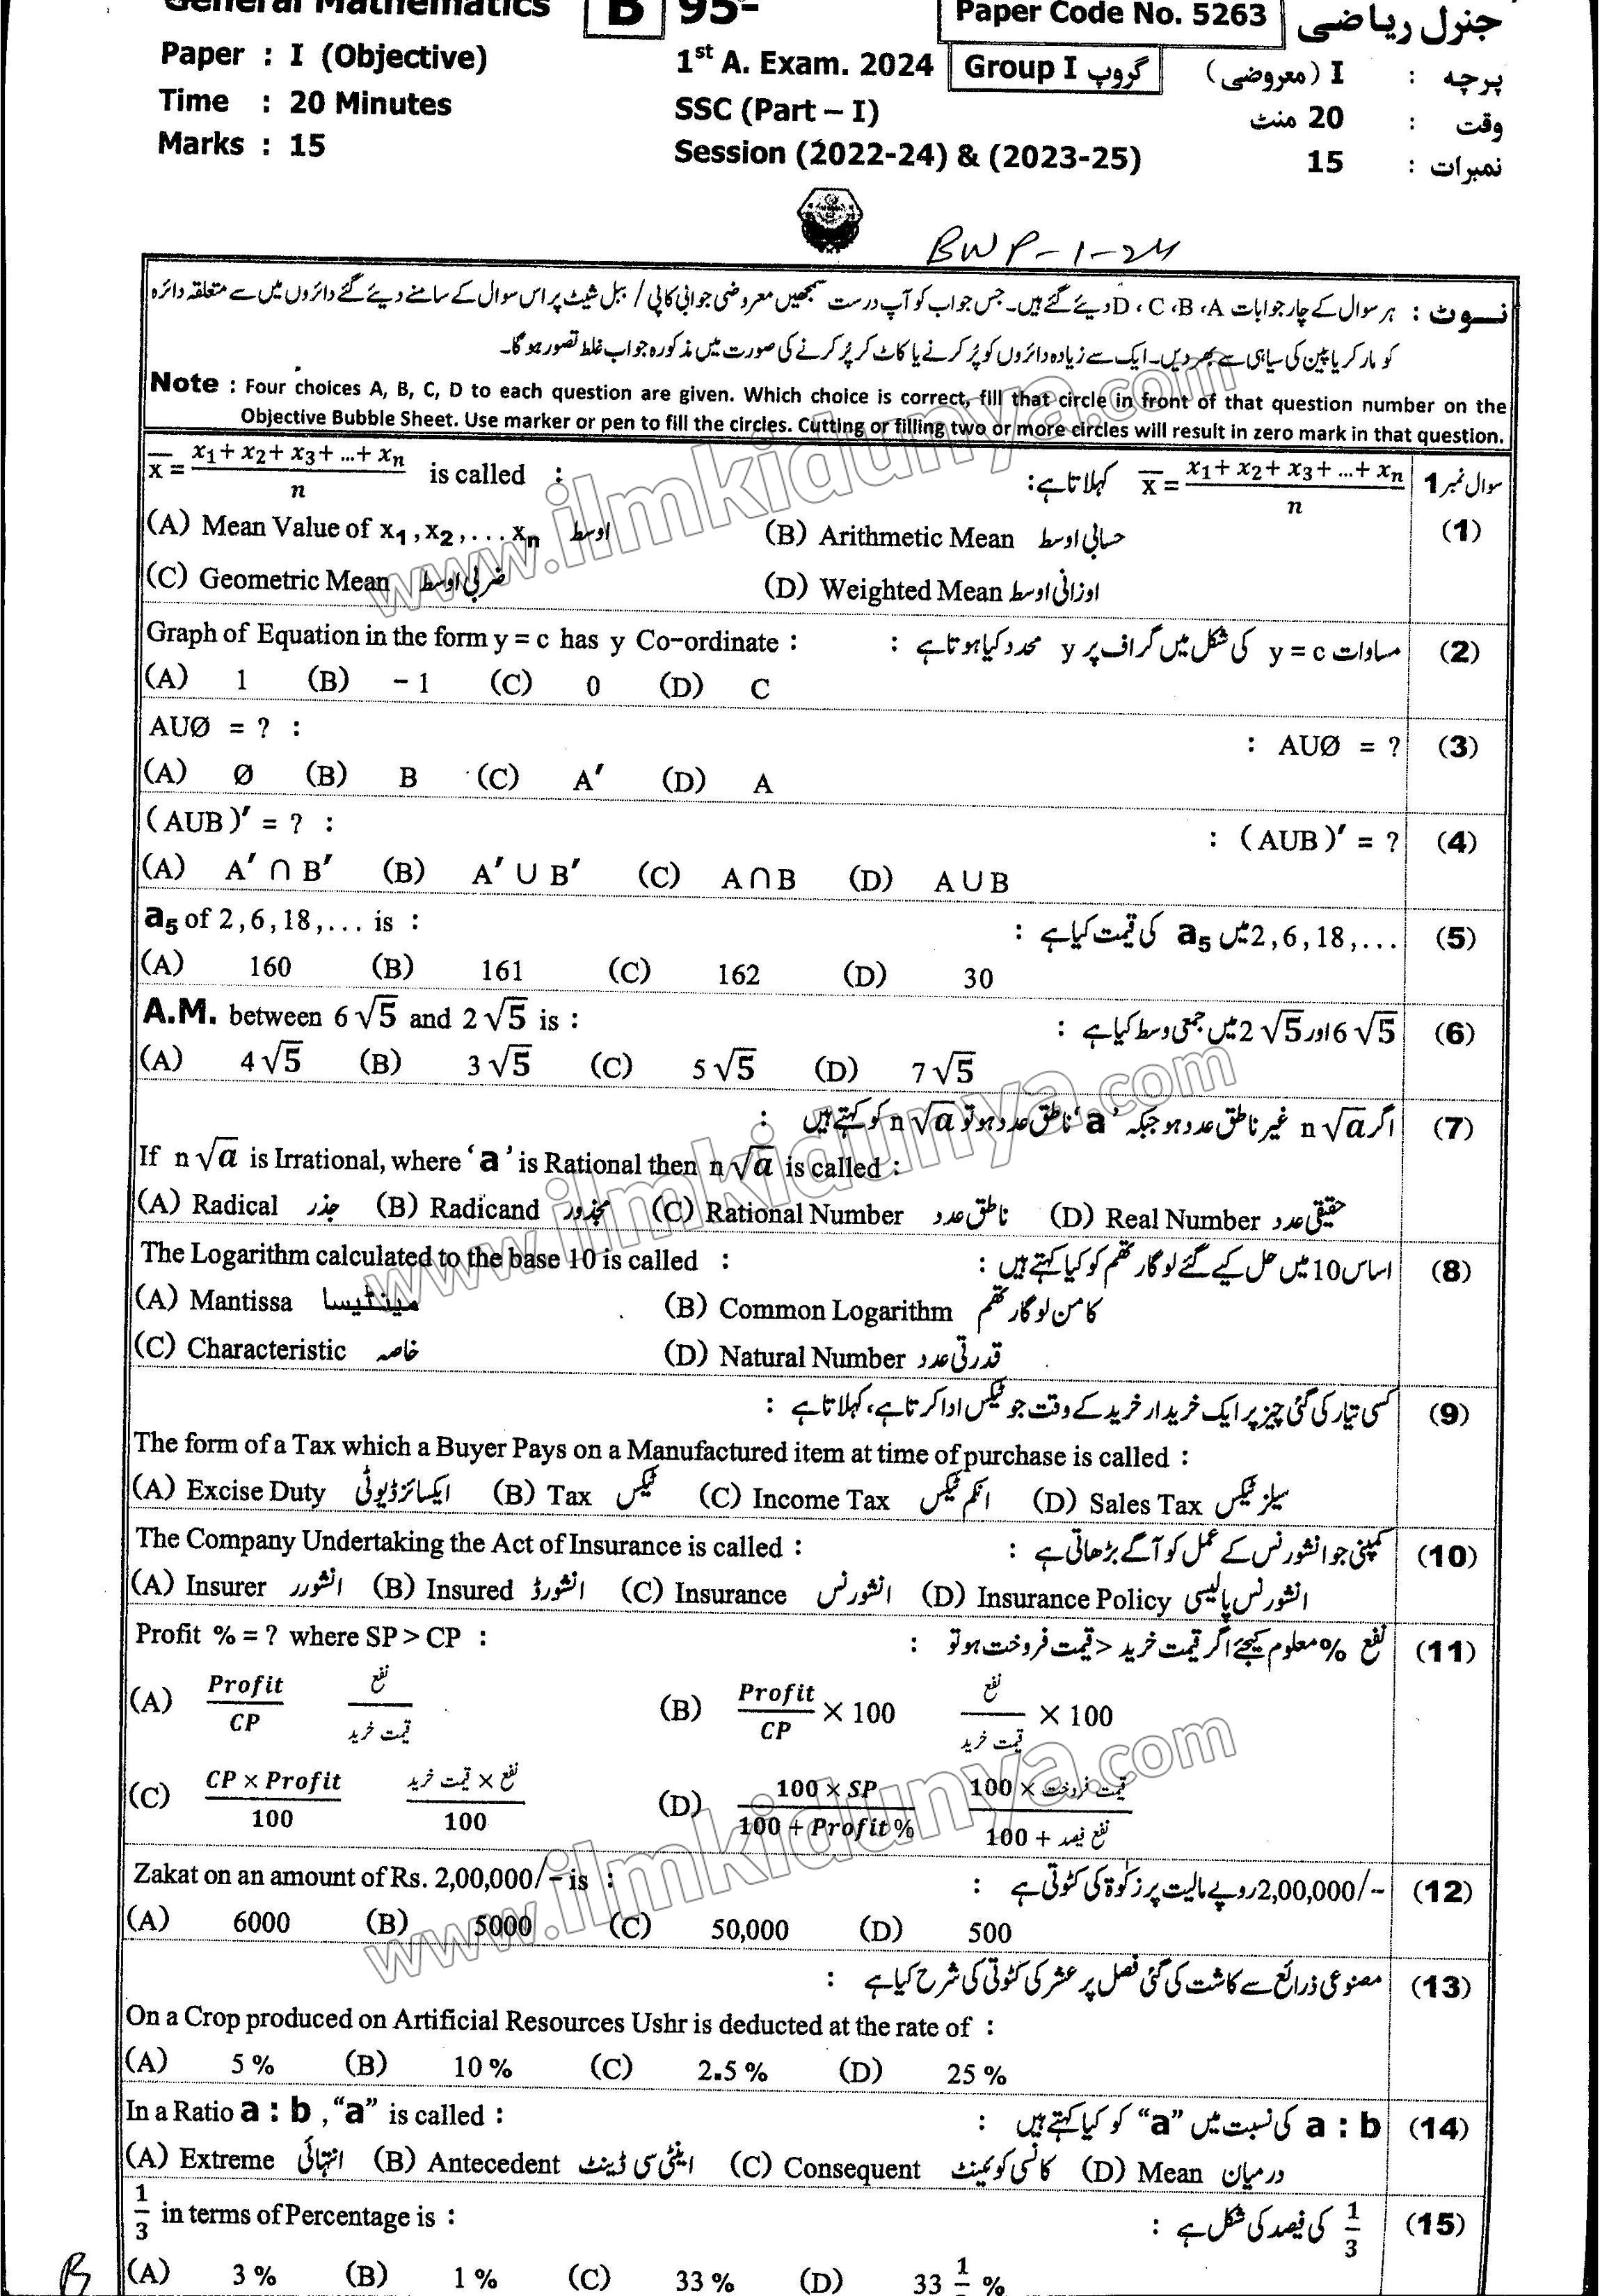 General Mathematics B 95- Paper Code No. 5263 جنرل ریاضی
Paper : I (Objective) 1st A. Exam. 2024 Group I گروپ I (معروضی) : پرچہ
Time : 20 Minutes SSC (Part – I) 20 منٹ : وقت
Marks : 15 Session (2022-24) & (2023-25) 15 : نمبرات
BWP-1-24
نوٹ : ہر سوال کے چار جوابات D ، C ،B ،A دیئے گئے ہیں۔ جس جواب کو آپ درست سمجھیں معروضی جوابی کاپی / ببل شیٹ پر اس سوال کے سامنے دیئے گئے دائروں میں سے متعلقہ دائرہ
کو مارکر یا پین کی سیاہی سے بھر دیں۔ ایک سے زیادہ دائروں کو پُر کرنے یا کاٹ کر پُر کرنے کی صورت میں مذکورہ جواب غلط تصور ہو گا۔
Note : Four choices A, B, C, D to each question are given. Which choice is correct, fill that circle in front of that question number on the
Objective Bubble Sheet. Use marker or pen to fill the circles. Cutting or filling two or more circles will result in zero mark in that question.
x̅ = (x₁ + x₂ + x₃ + ... + xₙ)/n is called : کہلاتا ہے: x̅ = (x₁ + x₂ + x₃ + ... + xₙ)/n سوال نمبر 1
(A) Mean Value of x₁ , x₂ , . . . xₙ اوسط (B) Arithmetic Mean حسابی اوسط (1)
(C) Geometric Mean ضربی اوسط (D) Weighted Mean اوزانی اوسط
Graph of Equation in the form y = c has y Co-ordinate : مساوات y = c کی شکل میں گراف پر y محدد کیا ہوتا ہے : (2)
(A) 1 (B) – 1 (C) 0 (D) C
AUØ = ? : : AUØ = ? (3)
(A) Ø (B) B (C) A′ (D) A
( AUB )′ = ? : : ( AUB )′ = ? (4)
(A) A′ ∩ B′ (B) A′ ∪ B′ (C) A ∩ B (D) A ∪ B
a₅ of 2 , 6 , 18 , . . . is : 2 , 6 , 18 , . . . میں a₅ کی قیمت کیا ہے : (5)
(A) 160 (B) 161 (C) 162 (D) 30
A.M. between 6 √5 and 2 √5 is : 6 √5 اور 2 √5 میں جمعی وسط کیا ہے : (6)
(A) 4 √5 (B) 3 √5 (C) 5 √5 (D) 7 √5
اگر n √a غیر ناطق عدد ہو جبکہ ‘a’ ناطق عدد ہو تو n √a کو کہتے ہیں : (7)
If n √a is Irrational, where ‘ a ’ is Rational then n √a is called :
(A) Radical جذر (B) Radicand مجذور (C) Rational Number ناطق عدد (D) Real Number حقیقی عدد
The Logarithm calculated to the base 10 is called : اساس 10 میں حل کیے گئے لوگارتھم کو کیا کہتے ہیں : (8)
(A) Mantissa مینٹیسا (B) Common Logarithm کامن لوگارتھم
(C) Characteristic خاصہ (D) Natural Number قدرتی عدد
کسی تیار کی گئی چیز پر ایک خریدار خرید کے وقت جو ٹیکس ادا کرتا ہے، کہلاتا ہے : (9)
The form of a Tax which a Buyer Pays on a Manufactured item at time of purchase is called :
(A) Excise Duty ایکسائز ڈیوٹی (B) Tax ٹیکس (C) Income Tax انکم ٹیکس (D) Sales Tax سیلز ٹیکس
The Company Undertaking the Act of Insurance is called : کمپنی جو انشورنس کے عمل کو آگے بڑھاتی ہے : (10)
(A) Insurer انشورر (B) Insured انشورڈ (C) Insurance انشورنس (D) Insurance Policy انشورنس پالیسی
Profit % = ? where SP > CP : نفع % معلوم کیجئے اگر قیمت خرید < قیمت فروخت ہو تو : (11)
(A) Profit/CP نفع/قیمت خرید (B) Profit/CP × 100 نفع/قیمت خرید × 100
(C) CP × Profit/100 نفع × قیمت خرید/100 (D) 100 × SP/100 + Profit % قیمت فروخت × 100/نفع فیصد + 100
Zakat on an amount of Rs. 2,00,000/– is : 2,00,000/– روپے مالیت پر زکوٰۃ کی کٹوتی ہے : (12)
(A) 6000 (B) 5000 (C) 50,000 (D) 500
مصنوعی ذرائع سے کاشت کی گئی فصل پر عشر کی کٹوتی کی شرح کیا ہے : (13)
On a Crop produced on Artificial Resources Ushr is deducted at the rate of :
(A) 5 % (B) 10 % (C) 2.5 % (D) 25 %
In a Ratio a : b , “a” is called : a : b کی نسبت میں “a” کو کیا کہتے ہیں : (14)
(A) Extreme انتہائی (B) Antecedent اینٹی سی ڈینٹ (C) Consequent کانسی کوئینٹ (D) Mean درمیان
1/3 in terms of Percentage is : 1/3 کی فیصد کی شکل ہے : (15)
(A) 3 % (B) 1 % (C) 33 % (D) 33 1/ %
B
www.ilmkidunya.com
www.ilmkidunya.com
www.ilmkidunya.com